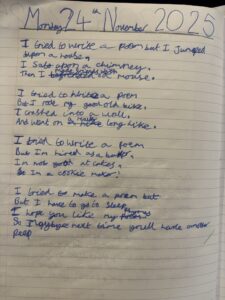 Monday 24th November 2025
I tried to write a poem but I Jumped
upon a house,
I Sat upon a chimney.
Then I a mouse.
I tried to write a poem
But I rode my good old bike.
I crashed into a wall.
And went on a long hike.
I tried to write a poem
But I'm hired as a
Im not good at cakes
So Im a cookie maker!
I tried to make a poem but
But I have to go to sleep
I hope you like my
So next time you'll have another
peep